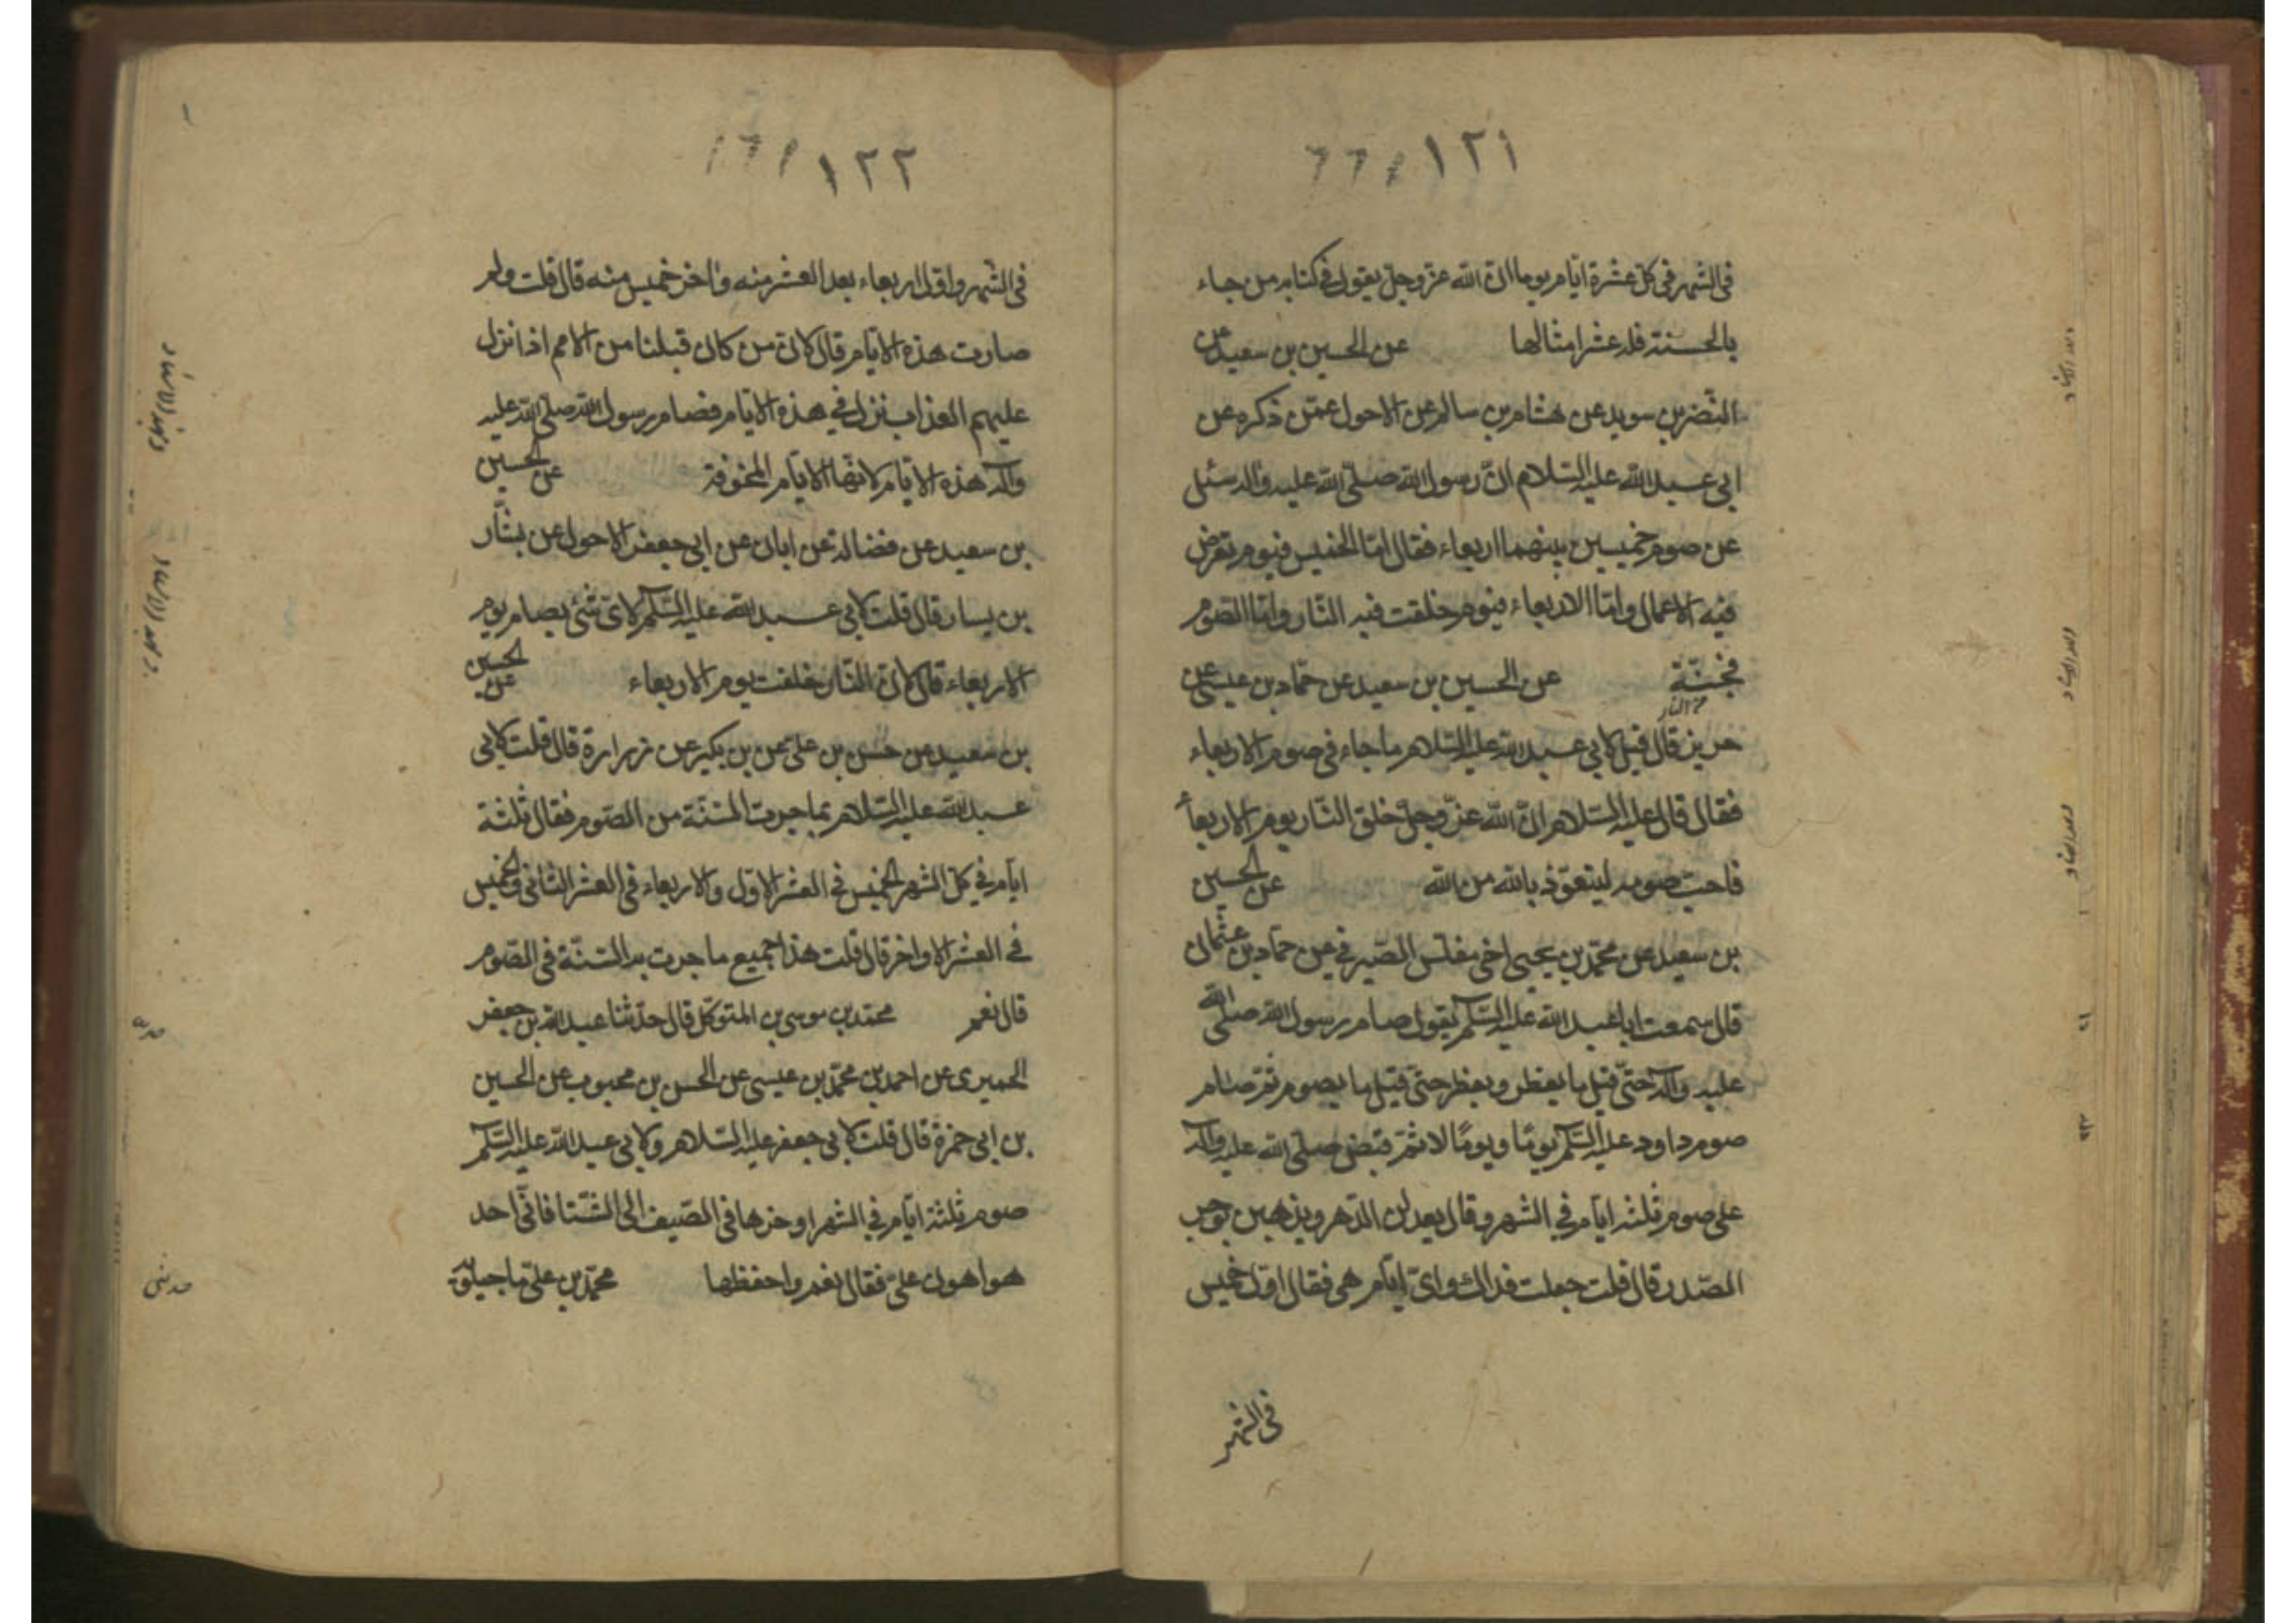 ١٢١
فى الشهر فى كل عشرة ايام يوما ان الله عز وجل يقول فى كتابه من جاء
بالحسنة فله عشر امثالها عن الحسين بن سعيد عن
النضر بن سويد عن هشام بن سالم عن الاحول عمن ذكره عن
ابى عبد الله عليه السلام ان رسول الله صلى الله عليه واله سئل
عن صوم خميسين بينهما اربعاء فقال اما الخميس فيوم تعرض
فيه الاعمال واما الاربعاء فيوم خلقت فيه النار واما الصوم
فجنة عن الحسين بن سعيد عن حماد بن عيسى عن
من النار
حريز قال قيل لابى عبد الله عليه السلام ما جاء فى صوم الاربعاء
فقال قال عليه السلام ان الله عز وجل خلق النار يوم الاربعاء
فاحب صومه ليتعوذ بالله من الله عن الحسين
بن سعيد عن محمد بن يحيى اخى مغلس الصيرفى عن حماد بن عثمان
قال سمعت ابا عبد الله عليه السلم يقول صام رسول الله صلى الله
عليه واله حتى قيل ما يفطر ويفطر حتى قيل ما يصوم ثم صام
صوم داود عليه السلم يومًا ويومًا لا ثم قبض صلى الله عليه واله
على صوم ثلثة ايام فى الشهر وقال يعدلن الدهر ويذهبن بوحر
الصدر قال قلت جعلت فداك واى ايام هى فقال اول خميس
فى الشهر
١٢٢
فى الشهر واول اربعاء بعد العشر منه واخر خميس منه قال قلت ولم
صارت هذه الايام قال لان من كان قبلنا من الامم اذا نزل
عليهم العذاب نزل فى هذه الايام فصام رسول الله صلى الله عليه
واله هذه الايام لانها الايام المخوفة عن الحسين
بن سعيد عن فضالة عن ابان عن ابى جعفر الاحول عن بشار
بن يسار قال قلت لابى عبد الله عليه السلم لاى شئ يصام يوم
الاربعاء قال لان النار خلقت يوم الاربعاء عن الحسين
بن سعيد عن حسن بن على عن بن بكير عن زرارة قال قلت لابى
عبد الله عليه السلام بما جرت السنة من الصوم فقال ثلثة
ايام فى كل الشهر الخميس فى العشر الاول والاربعاء فى العشر الثانى والخميس
فى العشر الاواخر قال قلت هذا جميع ما جرت به السنة فى الصوم
قال نعم محمد بن موسى بن المتوكل قال حدثنا عبد الله بن جعفر
الحميرى عن احمد بن محمد بن عيسى عن الحسن بن محبوب عن الحسين
بن ابى حمزة قال قلت لابى جعفر عليه السلام ولابى عبد الله عليه السلم
صوم ثلثة ايام فى الشهر اوخرها فى الصيف الى الشتا فانى اجد
هو اهون على فقال نعم واحفظها محمد بن على ماجيلويه
وبهذا الاسناد
وبهذا الاسناد
حدثنى